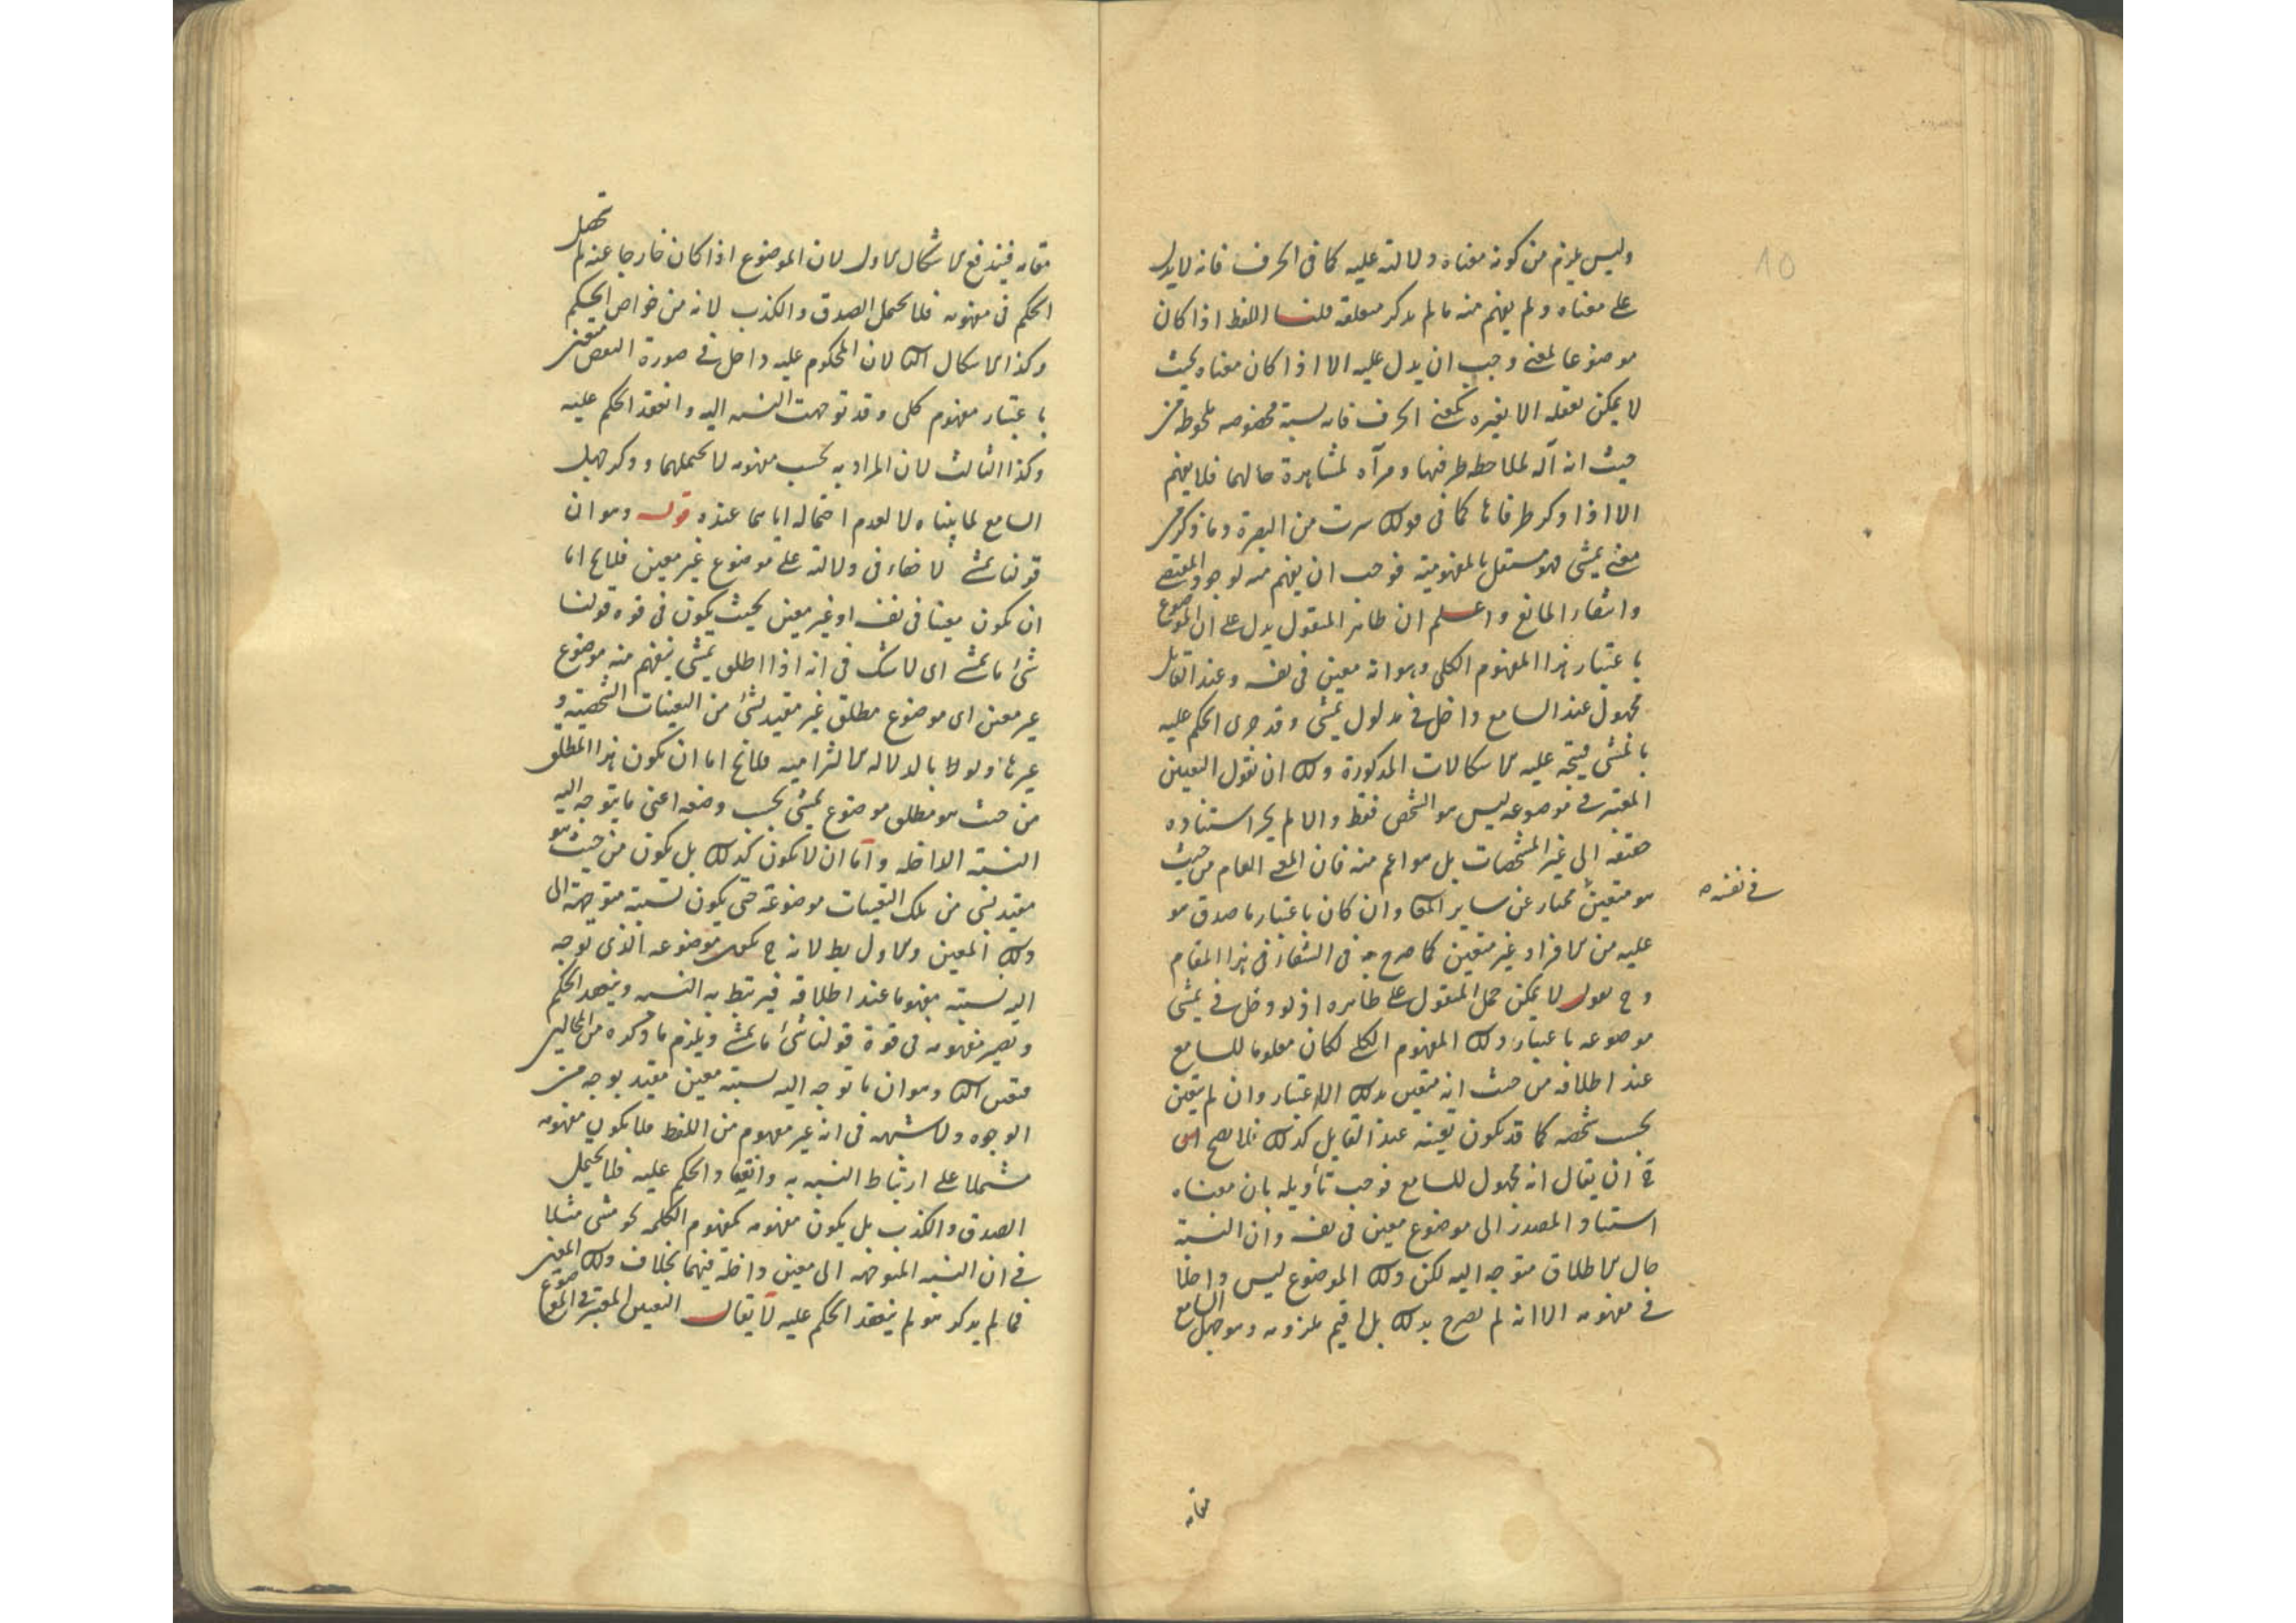 وليس يلزم من كونه معناه دلالته عليه كما في الحرف فانه لا يدل
على معناه ولم يفهم منه ما لم يذكر متعلقه قلنا اللفظ اذا كان
موضوعا لمعنى وجب ان يدل عليه الا اذا كان معناه بحيث
لا يمكن تعقله الا بغيره كمعنى الحرف فانه نسبة مخصوصه ملحوظه من
حيث انه آلة لملاحظه طرفيها ومرآه لمشاهدة حالهما فلا يفهم
الا اذا ذكر طرفاها كما في قولك سرت من البصرة وما ذكر من
معنى يمشى فهو مستقل بالمفهومية فوجب ان يفهم منه لوجود المقتضى
وانتفاء المانع واعلم ان ظاهر المنقول يدل على ان الموضوع
باعتبار هذا المفهوم الكلى وهو انه معين في نفسه وعند القايل
مجهول عند السامع داخل في مدلول يمشى وقد جرى الحكم عليه
بالمشى فيتجه عليه الاشكالات المذكورة ولك ان تقول التعيين
المعتبر في موضوعه ليس هو الشخص فقط والا لم يجز استناده
حقيقه الى غير المشخصات بل هو اعم منه فان المعنى العام من حيث
هو متعين ممتاز عن ساير المعا وان كان باعتبار ما صدق هو
في نفسه
عليه من الافراد غير متعين كما صرح به في الشفاء في هذا المقام
وح نقول لا يمكن حمل المنقول على ظاهره اذ لو دخل في يمشى
موضوعه باعتبار ذلك المفهوم الكلى لكان معلوما للسامع
عند اطلاقه من حيث انه متعين بذلك الاعتبار وان لم يتعين
بحسب شخصه كما قد يكون تعينه عند القايل كذلك فلا يصح
ح ان يقال انه مجهول للسامع فوجب تأويله بان معناه
استناد المصدر الى موضوع معين في نفسه وان النسبة
حال الاطلاق متوجه اليه لكن ذلك الموضوع ليس داخلا
في مفهومه الا انه لم يصرح بذلك بل اقيم ملزومه وهو جهل السامع
مقامه
مقامه فيندفع الاشكال الاول لان الموضوع اذا كان خارجا عنه لم يحصل
الحكم في مفهومه فلا يحتمل الصدق والكذب لانه من خواص الحكم
وكذا الاشكال الثا لان المحكوم عليه داخل في صورة النقض متعين
باعتبار مفهوم كلى وقد توجهت النسبه اليه وانعقد الحكم عليه
وكذا الثالث لان المراد به بحسب مفهومه لا يحتملهما وذكر جهل
السامع لما بيناه لا لعدم احتماله اياهما عنده قوله وهو ان
قولنا يمشى لا خفاء في دلالته على موضوع غير معين فلا يخ اما
ان يكون معينا في نفسه او غير معين بحيث يكون في قوة قولنا
شئ ما يمشى اى لا شك في انه اذا اطلق يمشى يفهم منه موضوع
غير معين اى موضوع مطلق غير مقيد بشئ من التعينات الشخصية و
غيرها ولو بالدلاله الالتزامية فلا يخ اما ان يكون هذا المطلق
من حيث هو مطلق موضوع يمشى بحسب وضعه اعنى ما يتوجه اليه
النسبة الداخله واما ان لا يكون كذلك بل يكون من حيث هو
مقيد بشئ من تلك التعينات موضوعه حتى يكون نسبته متوجهة الى
ذلك المعين والاول بط لانه ح يكون موضوعه الذى توجه
اليه نسبته مفهوما عند اطلاقه فيرتبط به النسبه وينعقد الحكم
ويصير مفهومه في قوة قولنا شئ ما يمشى ويلزم ما ذكره من المحالين
فتعين الثا وهو ان ما توجه اليه نسبته معين مقيد بوجه من
الوجوه ولا شبهه في انه غير مفهوم من اللفظ فلا يكون مفهومه
مشتملا على ارتباط النسبه به وانعقاد الحكم عليه فلا يحتمل
الصدق والكذب بل يكون مفهومه كمفهوم الكلمه نحو مشى مثلا
في ان النسبه المتوجهه الى معين داخلة فيهما بخلاف ذلك المعين
فما لم يذكر هو لم ينعقد الحكم عليه لا يقال التعيين المعتبر في الموضوع